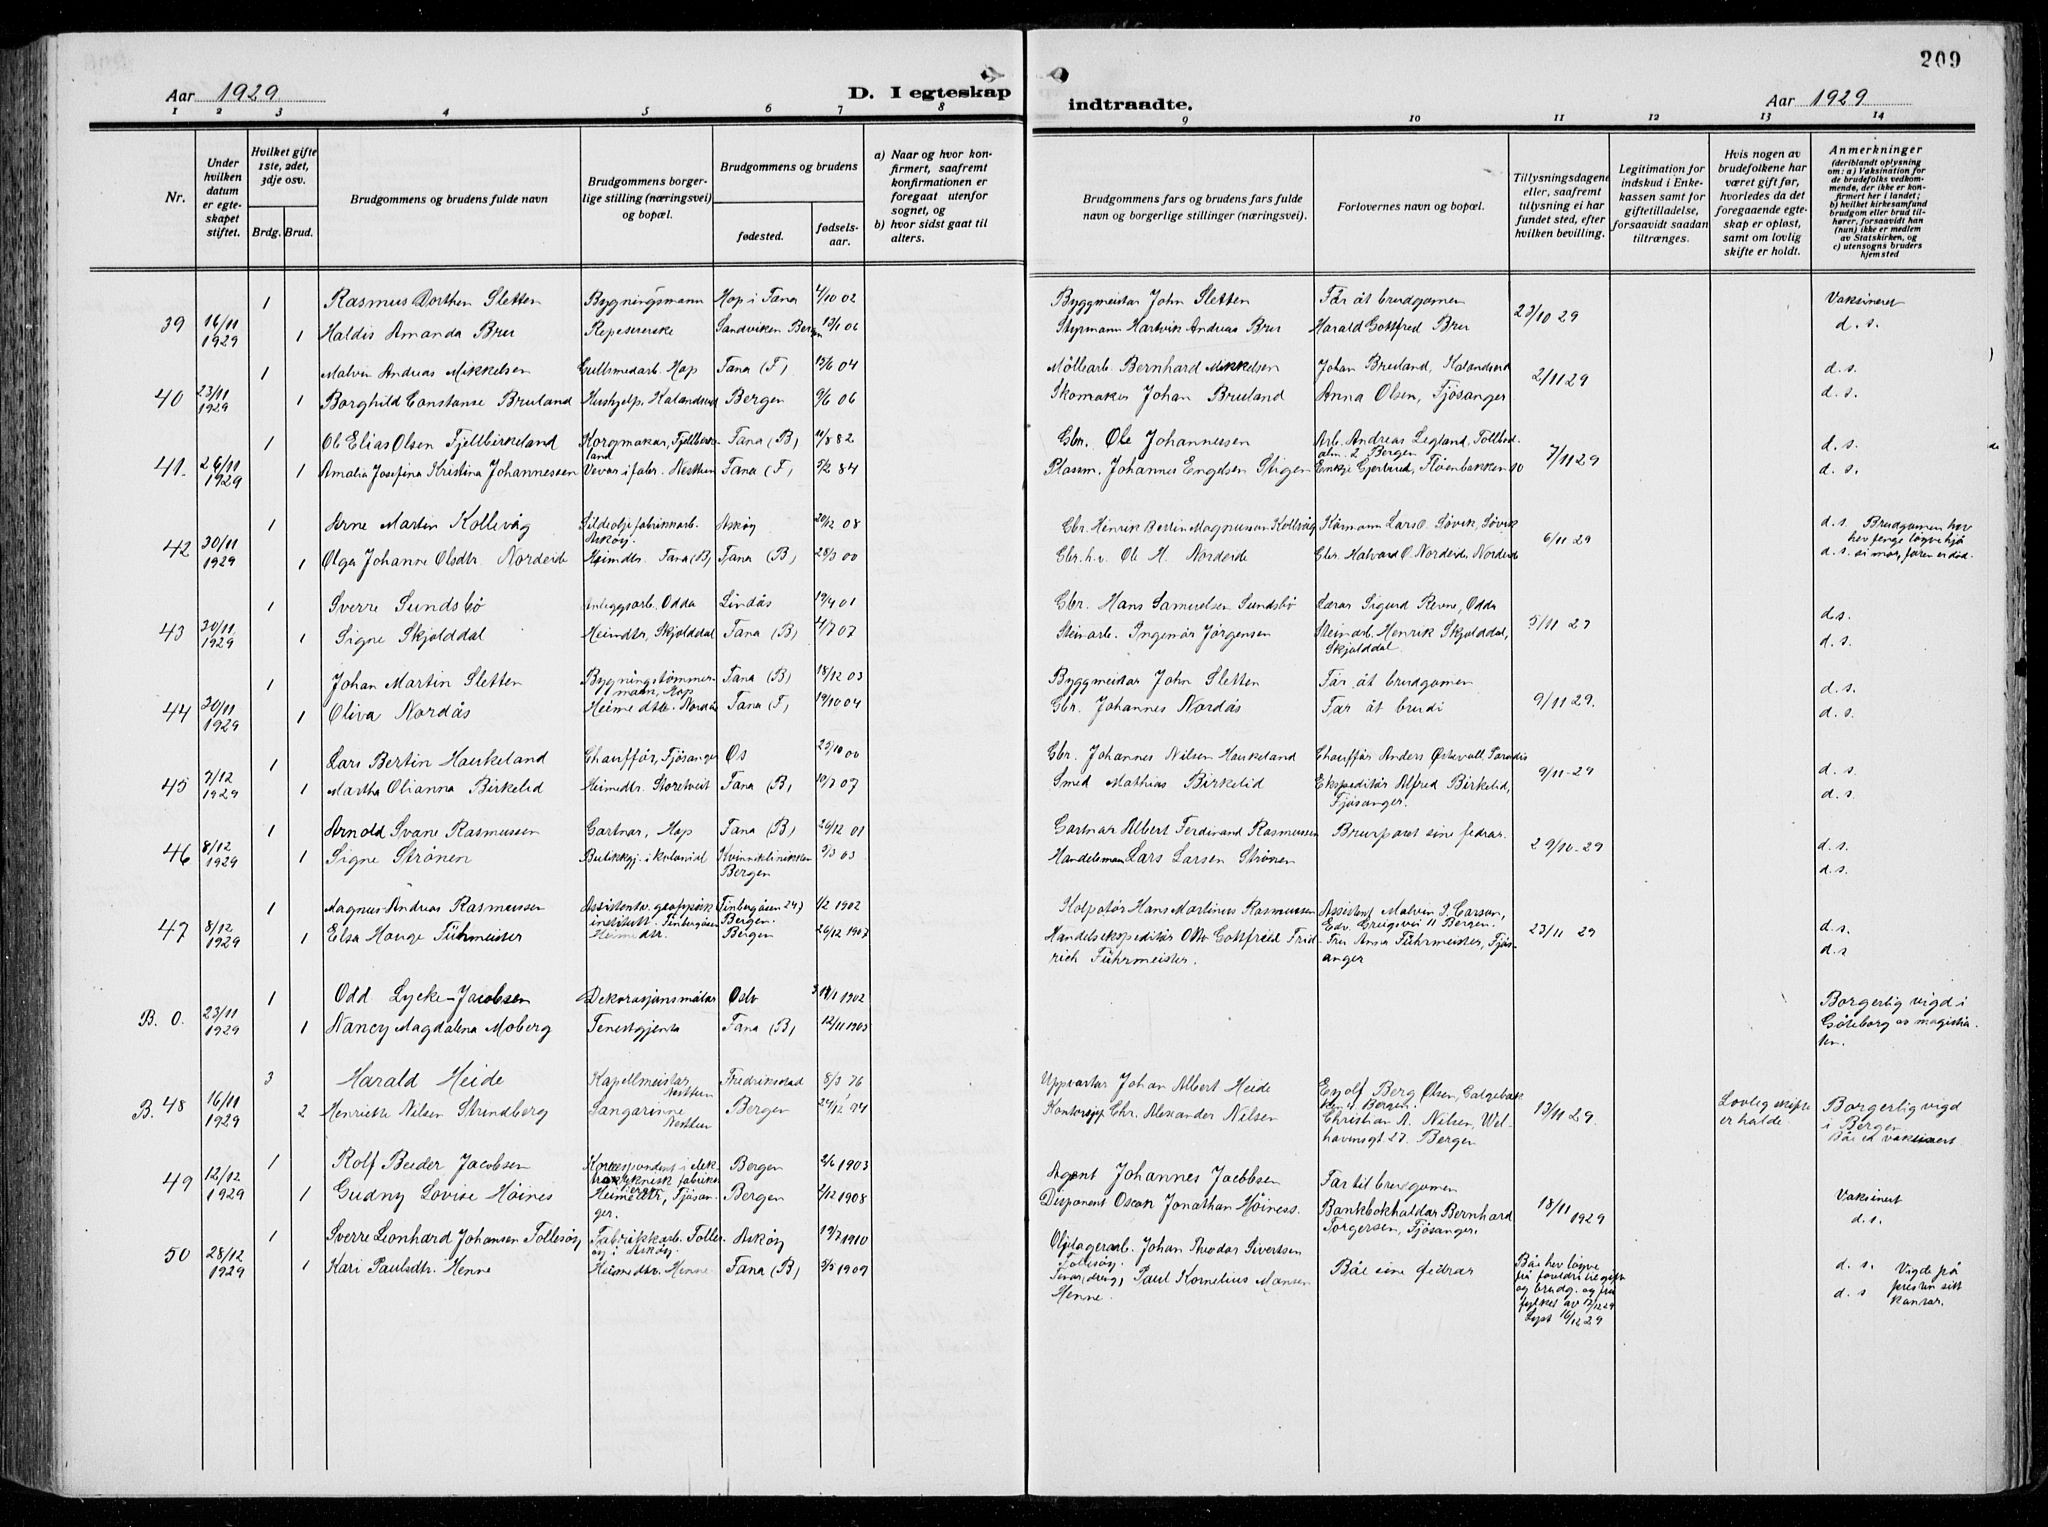 209
Aar 1929
D. I egteskap
indtraadte.
Aar 1929
1 2 3 4 5 6 7 8 9 10 11 12 13 14
Nr.
Under hvilken datum er egteskapet stiftet.
Hvilket gifte 1ste, 2det, 3dje osv.
Brdg. Brud.
Brudgommens og brudens fulde navn
Brudgommens borgerlige stilling (næringsvei) og bopæl.
Brudgommens og brudens
fødested. fødselsaar.
a) Naar og hvor konfirmert, saafremt konfirmationen er foregaat utenfor sognet, og
b) hvor sidst gaat til alters.
Brudgommens fars og brudens fars fulde navn og borgerlige stillinger (næringsvei).
Forlovernes navn og bopæl.
Tillysningsdagene eller, saafremt tillysning ei har fundet sted, efter hvilken bevilling.
Legitimation for indskud i Enkekassen samt for giftetilladelse, forsaavidt saadan tiltrænges.
Hvis nogen av brudefolkene har været gift før, hvorledes da det foregaaende egteskap er opløst, samt om lovlig skifte er holdt.
Anmerkninger
(deriblandt oplysning om: a) Vaksination for de brudefolks vedkommende, der ikke er konfirmert her i landet; b) hvilket kirkesamfund brudgom eller brud tilhører, forsaavidt han (hun) ikke er medlem av Statskirken, og c) utensogns bruders hjemsted
39 16/11 1929
1 Rasmus Dorthen Sletten Bygningsmann Hop i Fana 4/10 02 Byggmeistar John Sletten Far åt brudgomen 23/10 29 Vaksinert
1 Haldis Amanda Brur Sandviken Bergen 13/1 06 Styrmann Hartvik Andreas Brur Harald Gottfred Brur d. s.
40 23/11 1929
1 Malvin Andreas Mikkelsen Gullsmedarb. Hop Fana (F) 13/6 04 Möllearb. Bernhard Mikkelsen Johan Bruland, Kalandseid 2/11 29 d. s.
1 Borghild Constanse Bruland Hushjelp, Kalandseid Bergen 9/6 06 Skomaker Johan Bruland Anna Olsen, Fjösanger d. s.
41. 26/11 1929
1 Ole Elias Olsen Fjellbirkeland Korgmakar, Fjellbirkeland Fana (B) 11/8 82 Gbr. Ole Johannessen Arb. Andreas Legland, Tollbodalm. 2 Bergen 7/11 29 d. s.
1 Amalia Josefina Kristina Johannessen Vevar i fabr. Nesttun Fana (F) 9/2 84 Plassm. Johannes Engelsen Stigen Enkje Gjertrud, Fløenbakken 10 d. s.
42 30/11 1929
1 Arne Martin Kollevåg Sildeoljefabrikkarb. Askøy Askøy 20/12 08 Gbr. Henrik Bertin Magnusson Kollevåg Kårmann Lars O. Søvik, Søvik 6/11 29 d. s. Brudgomen hev
hev fenge løyve hjå
1 Olga Johanne Olsdtr Nordeide Heimdtr. Fana (B) Fana (B) 28/3 00 Gbr. h.v. Ole M. Nordeide Gbr. Halvard O. Nordeide, Nordeide d. s. si mor, faren er död.
43 30/11 1929
1 Sverre Sundsbö Anleggsarb. Odda Lindås 19/4 01 Gbr. Hans Samuelsen Sundsbö Lærar Sigurd Revne, Odda 5/11 29 d. s.
1 Signe Skjolddal Heimdtr, Skjolddal Fana (B) 4/7 07 Steinarb. Ingemår Jörgensen Steinarb. Henrik Skjolddal, Skjolddal d. s.
44 30/11 1929
1 Johan Martin Sletten Bygningstömmermann, Hop Fana (B) 18/12 03 Byggmeistar John Sletten Far åt brudgomen 9/11 29. d. s.
1 Oliva Nordås Heimedtr. Nordås Fana (F) 19/10 04 Gbr. Johannes Nordås Far åt brudi d. s.
45 7/12 1929
1 Lars Bertin Haukeland Chauffør, Fjösanger Os 23/10 00 Gbr. Johannes Nilsen Haukeland Chauffør Anders Østevoll, Paradis 9/11-29 d. s.
1 Martha Olianna Birkelid Heimedtr. Storetveit Fana (B) 10/7 07 Smed Mathias Birkelid Ekspeditör Alfred Birkelid, Fjösanger. d. s.
46 8/12 1929
1 Arnold Svane Rasmussen Gartnar, Hop Fana (B) 26/12 01 Gartnar Albert Ferdinand Rasmussen Brurparet sine fedrar. 29/10-29 d. s.
1 Signe Strönen Kvinneklinikken Bergen 9/3 03 Handelsmann Lars Larsen Strönen d. s.
47 8/12 1929
1 Magnus Andreas Rasmussen Assistent v. geofysisk institutt, Finbergåsen Finbergåsen 247 Bergen. 1/2 1902 Kolportör Hans Martinus Rasmussen Assistent Malvin J. Carson, Edv. Griegsvei 11 Bergen. 23/11 29 d. s.
1 Elsa Hauge Führmeister Heimedtr. Bergen 26/12 1907 Handelsekspeditör Otto Gottfried Fridrich Führmeister. Fru Anna Führmeister, Fjösanger d. s
B. 0. 23/11 1929
1 Odd Lycke-Jacobsen Dekorasjonsmålar Oslo 1902 Borgerlig vigd i
1 Nancy Magdalena Moberg Tenestgjenta Fana (B) 12/11 1903 Göteborg av magistraten.
B. 48 16/11 1929
3 Harald Heide Kapellmeistar Nesttun Fredrikstad 8/3 76 Uppvartar Johan Albert Heide Eyolf Berg Olsen, Galgebakken 4 Bergen. 13/11 29. Lovlig skifte er halde. Borgerlig vigd
i Bergen.
2 Henriette Nilsen Strindberg Sangarinne Nesttun Bergen 24/12 94 Kontorsjef Chr. Alexander Nilsen Christian A. Nilsen, Welhavensgt 27. Bergen Båe er vaksinert.
49 12/12 1929
1 Rolf Beder Jacobsen Korrespondent i elektroteknisk fabrikk Bergen Bergen 2/6 1903 Agent Johannes Jacobsen Far til brudgomen 18/11 1929 Vaksinert
1 Gudny Lovise Höines Heimedtr, Fjösanger. Bergen 2/12 1908 Disponent Oscar Jonathan Höiness. Bankbokhaldar Bernhard Torgersen, Fjösanger. d. s.
50 28/12 1929
1 Sverre Leonhard Johansen Follesöy Fabrikkarb. Follesöy i Askøy Askøy 19/7 1910 Oljelagerarb. Johan Theodor Sivertsen Follesöy. Båe sine fedrar Båe hev løyve frå foreldri til gifte og brudg. og frå fylket av 7/12 29 Lyst 16/12 29 d. s. Vigde på
presten sitt
kontor.
1 Kari Paulsdtr. Henne Heimedtr. Henne Fana (B) 3/5 1909 Paul Kornelius Monsen Henne. d. s